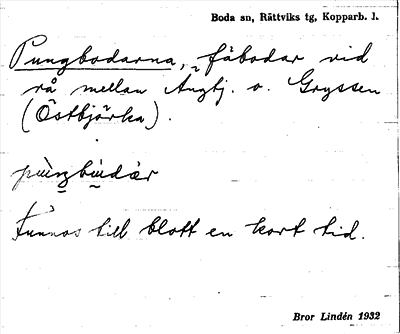 Boda sn, Rättviks tg, Kopparb. l.
Pungbodarna, fäbodar vid
rå mellan Ängtj. o. Gryssen
(Östbjörka).
Funnos till blott en kort tid.
Bror Lindén 1932